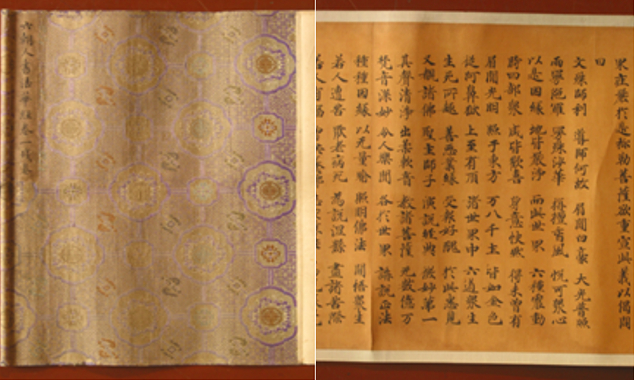 六朝人書法華經卷一殘
界莊嚴於是彌勒菩薩欲重宣此義以偈問
曰
文殊師利 導師何故 眉間白毫 大光普照
雨曼陀羅 曼殊沙華 栴檀香風 悅可眾心
以是因緣 地皆嚴淨 而此世界 六種震動
時四部眾 咸皆歡喜 身意快然 得未曾有
眉間光明 照于東方 万八千土 皆如金色
從阿鼻獄 上至有頂 諸世界中 六道眾生
生死所趣 善惡業緣 受報好醜 於此悉見
又覩諸佛 聖主師子 演說經典 微妙第一
其聲清淨 出柔軟音 教諸菩薩 无數億万
梵音深妙 令人樂聞 各於世界 講說正法
種種因緣 以无量喻 照明佛法 開悟眾生
若人遭苦 厭老病死 為說涅槃 盡諸苦際